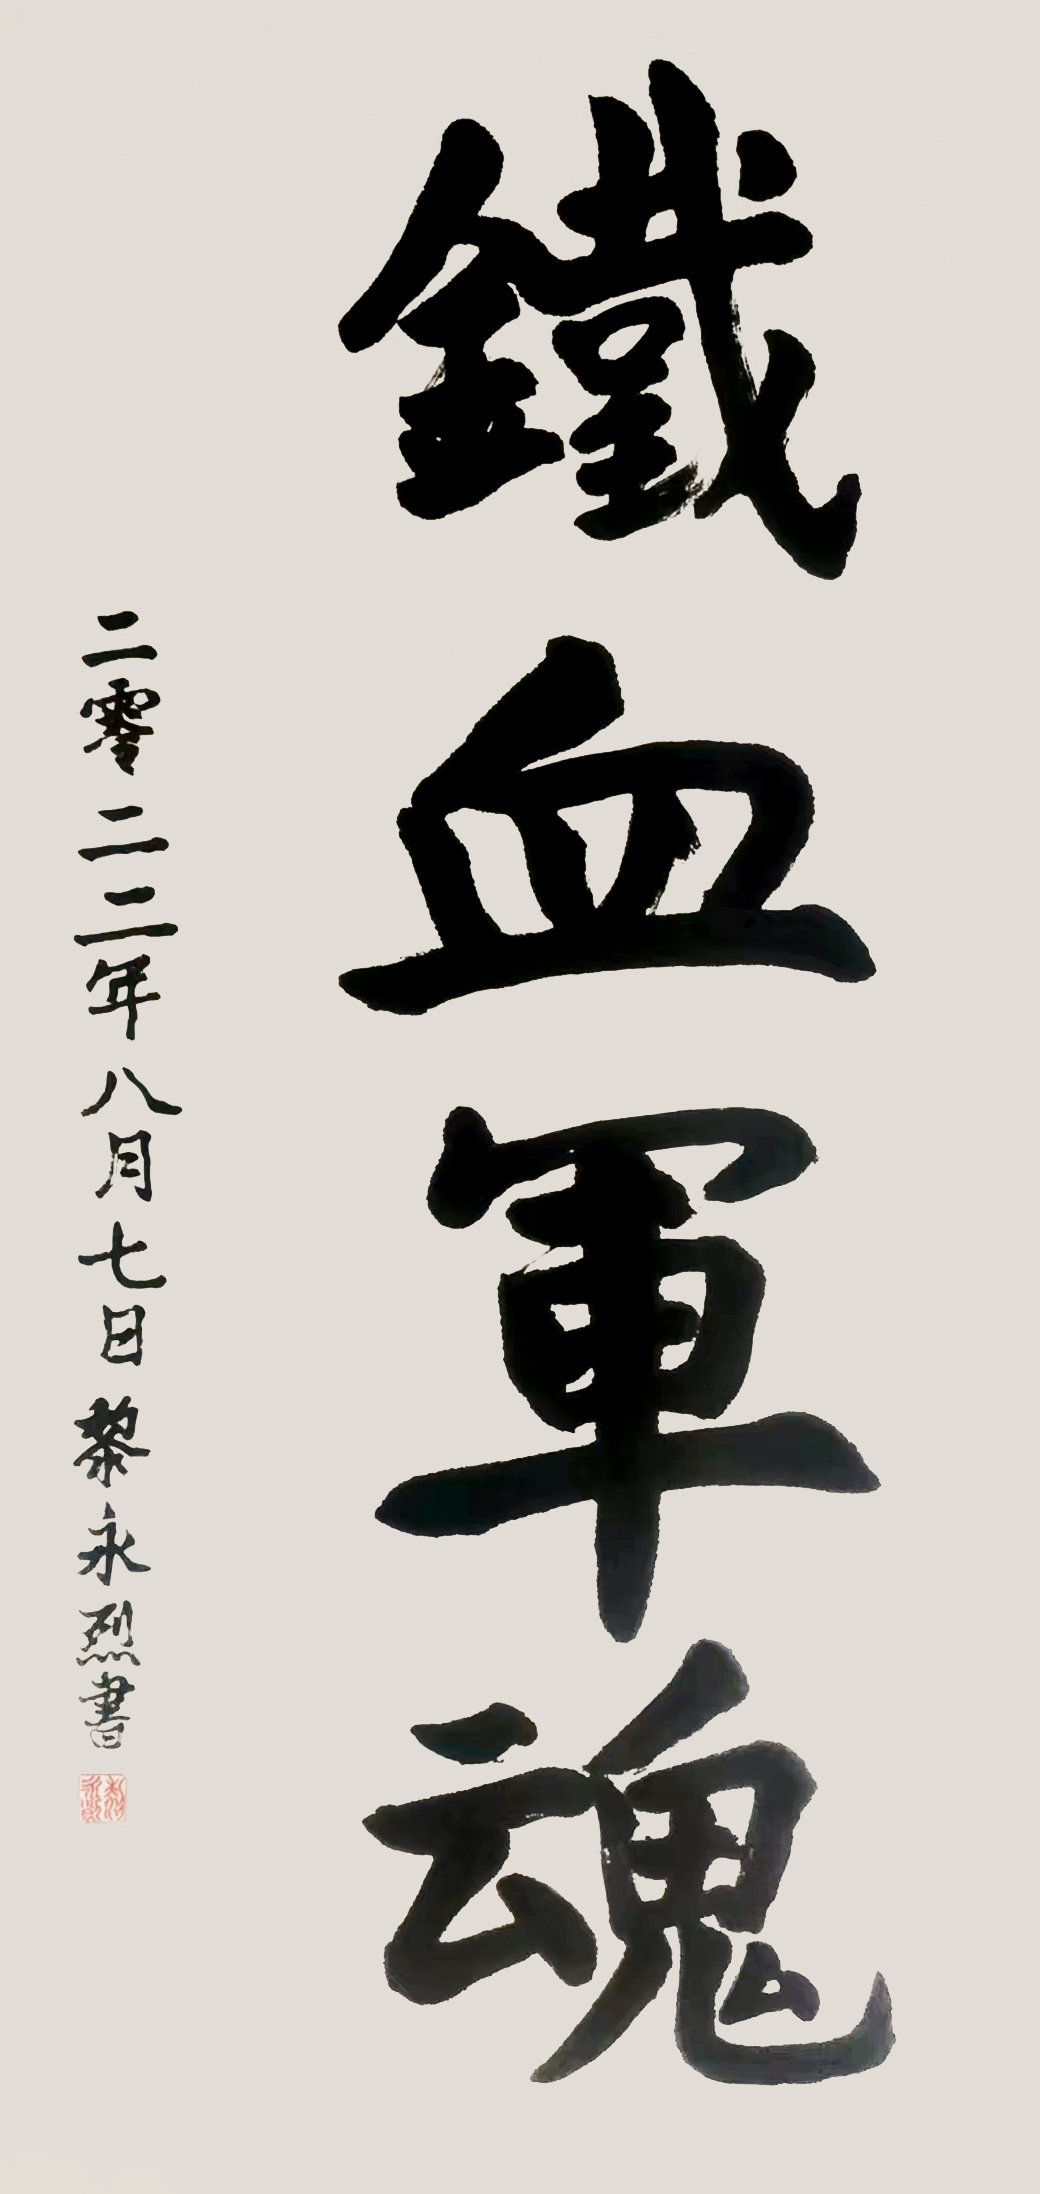 鐵血軍魂
二零二二年八月七日黎永烈書